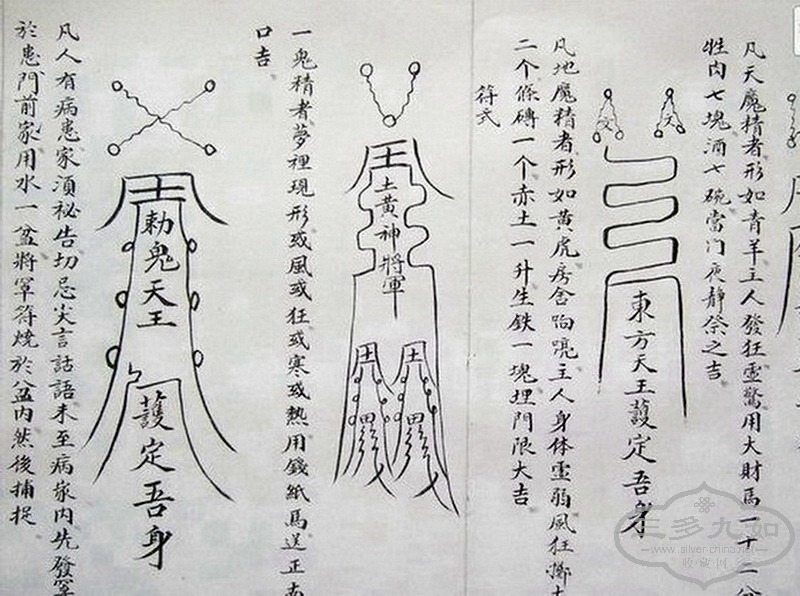 凡天魔精者形如青羊主人發狂靈驚用大財馬一十二分
牲肉七塊酒七碗當门夜靜祭之吉
文 文
東方天王護定吾身
凡地魔精者形如黃虎房舍响唬主人身体靈弱風狂擲
二个條磚一个赤土一升生鉄一塊埋門限大吉
符式
土黃神將軍
一鬼精者夢裡現形或風或狂或寒或熱用錢紙馬送正南
口吉
勅鬼天王
護定吾身
凡人有病患家須祕告切忌尖言詁語未至病家内先發
於患門前家用水一盆將罩符燒於盆内然後捕捉
三多九如
www.silver-china.net
收藏网